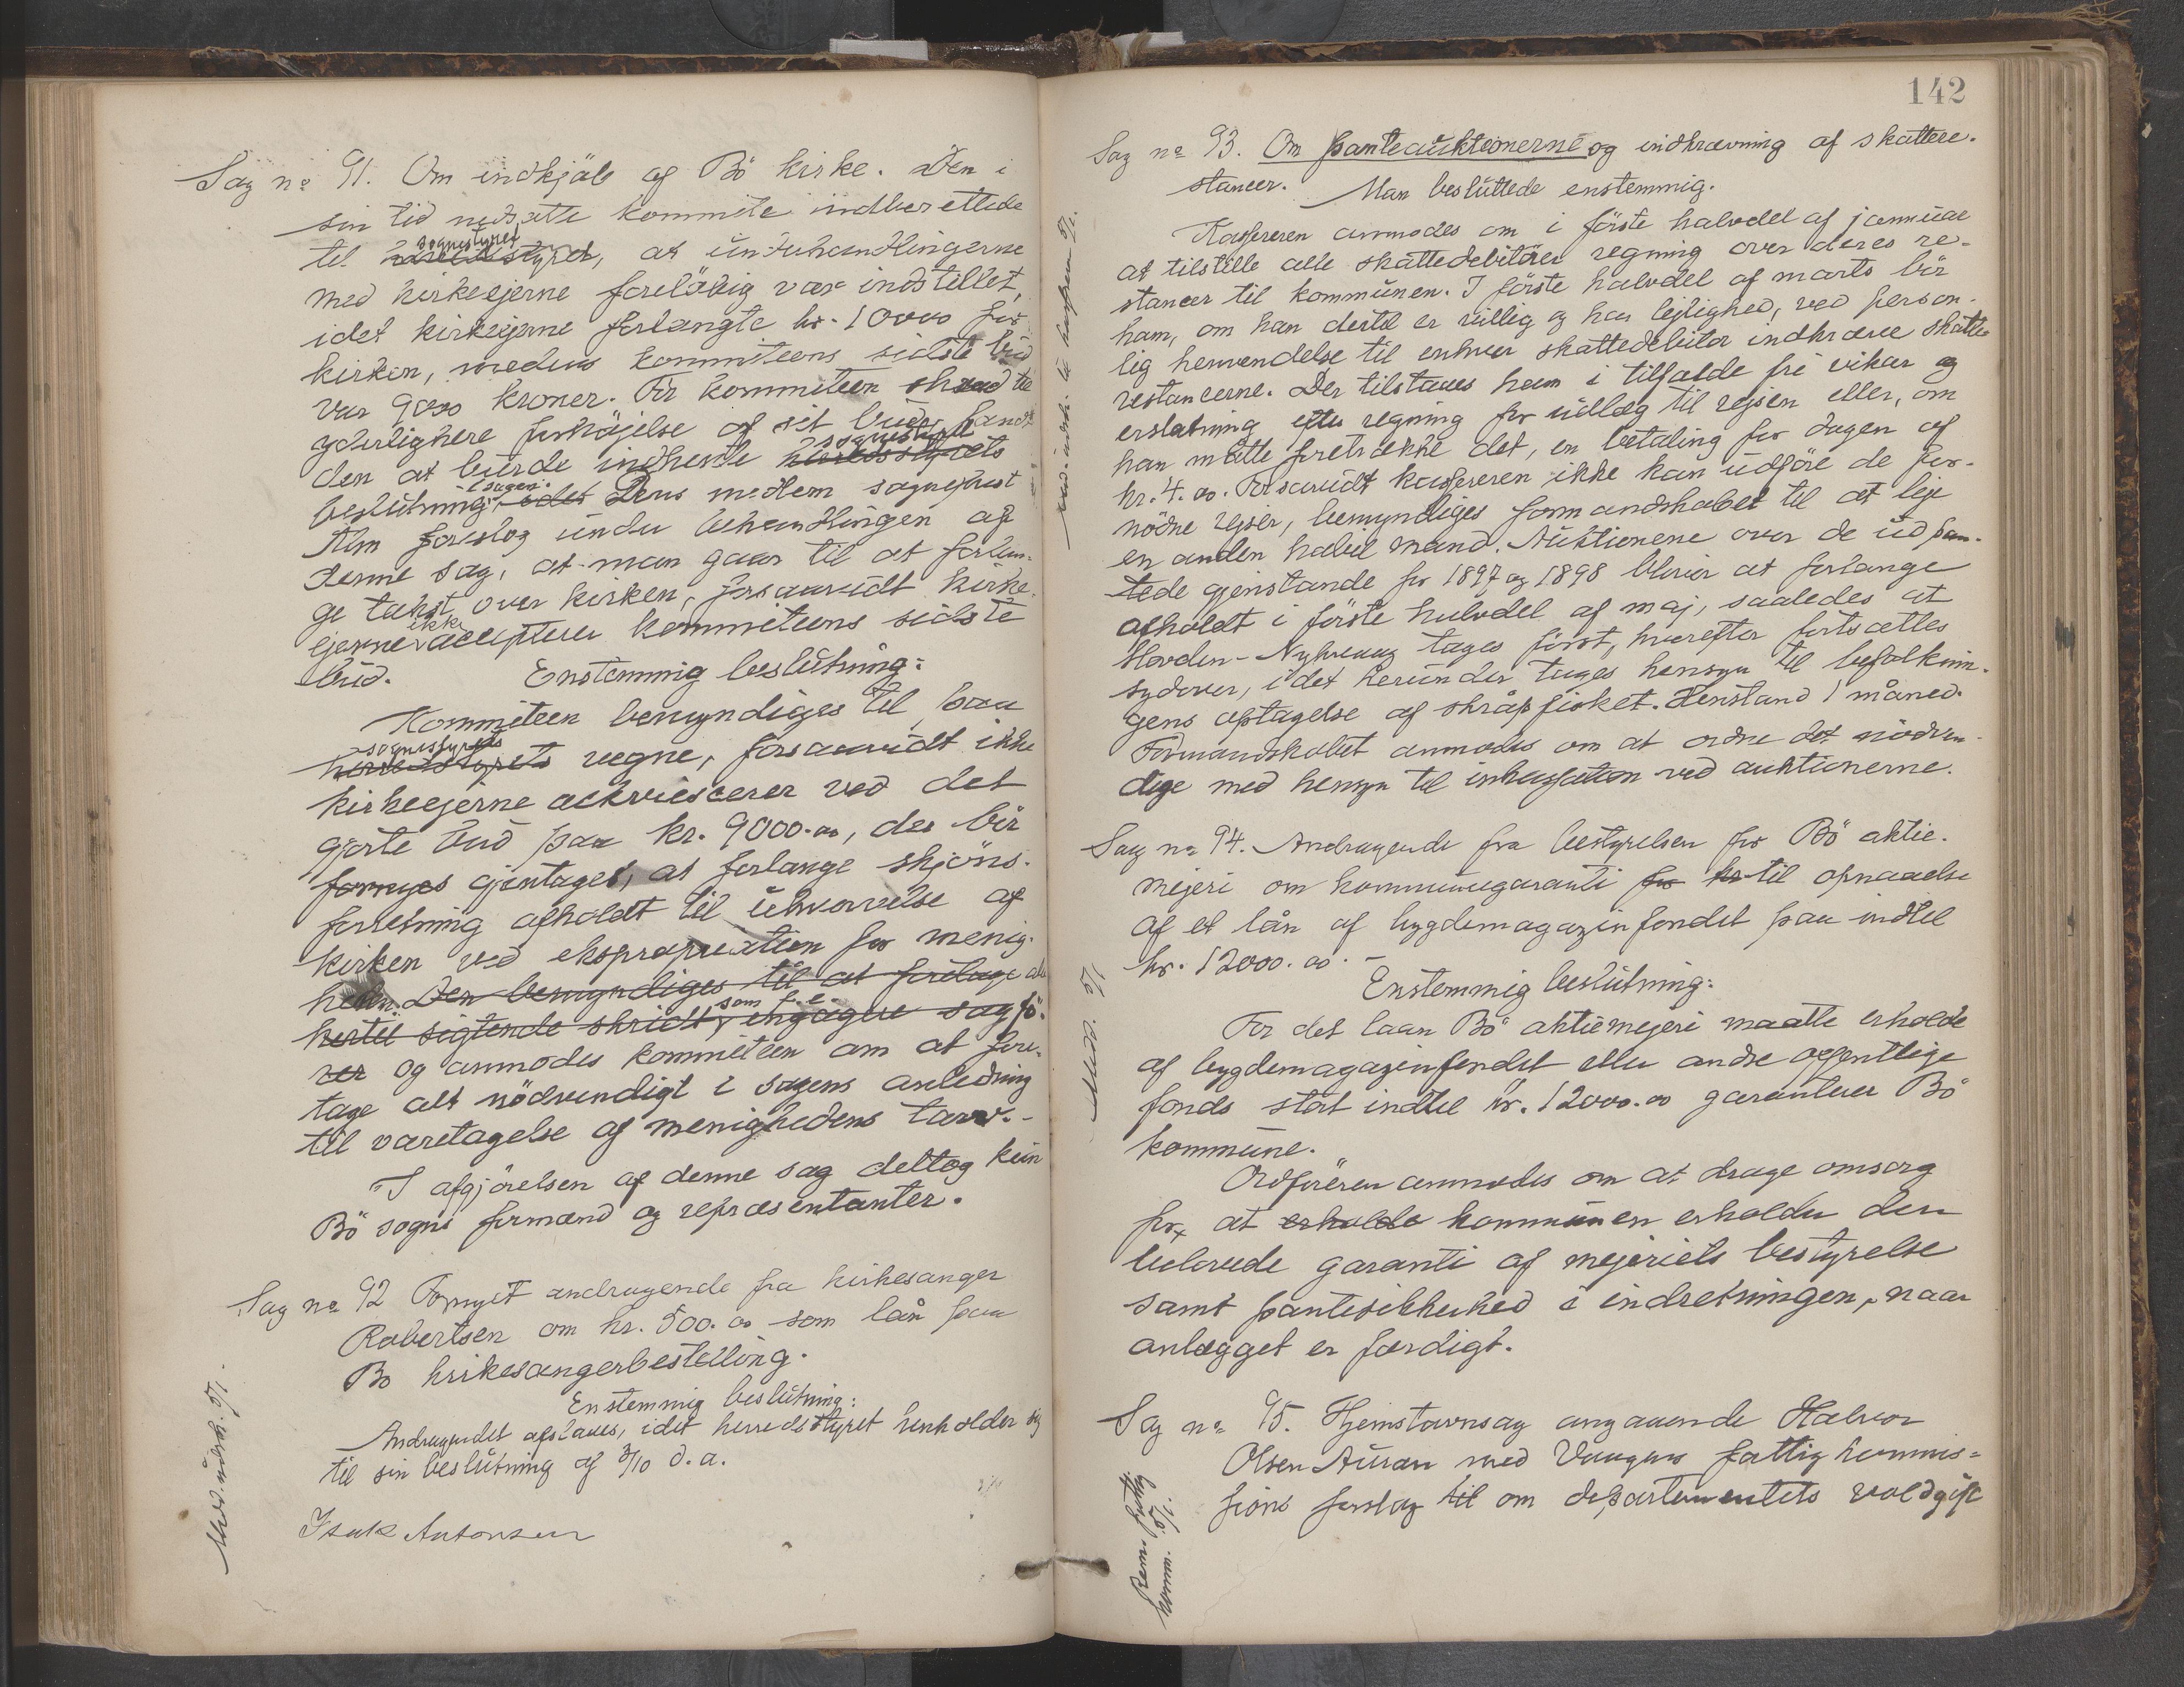 Sag nº 91. Om indkjöb af Bö kirke. Den i
sin tid nedsatte kommite indberettede
til herredsstyret sognestyret, at underhandlingerne
med kirkeejerne forelöbig var indstillet,
idet kirkeejerne forlangte kr. 10000 for
kirken, medens kommiteens sidste bud
var 9000 kroner. Før kommiteen skred til
yderligere forhöjelse af sit bud, fandt
den at burde indhente herredsstyrets sognestyrets
beslutning i sagen. Dens medlem sogneprest
Alm foreslog under behandlingen af
denne sag, at man gaar til at forlan-
ge takst over kirken, forsaavidt kirke-
ejerne ikke accepterer kommiteens sidste
bud. Enstemmig beslutning:
Kommiteen bemyndiges til paa
herredsstyrets sognestyrets vegne, forsaavidt ikke
kirkeejerne ackviescerer ved det
gjorte bud paa kr. 9000.00, der bör
fornyes gjentages, at forlange skjöns-
forretning afholdt til erhvervelse af
kirken ved ekspropriation for menig-
heden. Den bemyndiges til at foretage alle
hertil sigtende skridt, som f. e. engagere sagfö-
rer og anmodes kommiteen om at fore-
tage alt nödvendigt i sagens anledning
til varetagelse af menighedens tarv.-
I afgjörelsen af denne sag deltog kun
Bö sogns formænd og repræsentanter.
Sag nº 92 Fornyet andragende fra kirkesanger
Robertsen om kr. 500.00 som lån paa
Bö kirkesangerbestilling.
Enstemmig beslutning:
Andragendet afslaaes, idet herredsstyret henholder sig
til sin beslutning af 3/10 d. a.
Isak Antonsen
Med. udsk. 5/1.
142
Sag nº 93. Om panteauktionerne og inddrivning af skattere-
stancer. Man besluttede enstemmig.
Kassereren anmodes om i förste halvdel af januar
at tilstille alle skattedebitörer regning over deres re-
stancer til kommunen. I förste halvdel af marts bör
ham, om han dertil er villig og har lejlighed, ved person-
lig henvendelse til enhver skattedebitor inddrive skatte-
restancerne. Der tilstaaes ham i tilfælde fri vikar og
erstatning efter regning for udlæg til rejsen eller, om
han måtte foretrække det, en betaling for dagen af
kr. 4.00. Forsavidt kassereren ikke kan udföre de for-
nödne rejser, bemyndiges formandskabet til at leje
en anden habil mand. Auktionene over de udpan-
tede gjenstande for 1897 og 1898 bliver at forlange
afholdt i förste halvdel af maj, saaledes at
Hovden-Nykvaag tages först, hvorefter fortsættes
sydover, idet herunder tages hensyn til befolknin-
gens optagelse af skråpfisket. Henstand 1 måned.
Formandskabet anmodes om at ordne det nödven-
dige med hensyn til inkassation ved auktionerne.
Sag nº 94. Andragende fra bestyrelsen for Bö aktie-
mejeri om kommunegaranti for kr til opnaaelse
af et lån af bygdemagazinfondet paa indtil
kr. 12000.00.-
Enstemmig beslutning:
For det laan Bö aktiemejeri maatte erholde
af bygdemagazinfondet eller andre offentlige
fonds stort indtil kr. 12000.00 garanterer Bö
kommune.
Ordföreren anmodes om at drage omsorg
for, at erholde kommunen erholder den
lovede garanti af mejeriets bestyrelse
samt pantesikkerhed i indretningen, naar
anlægget er færdigt.
Sag nº 95. Hjemstavnsag angaaende Halvor
Olsen Auran med Vaagens fattigkommis-
sions forslag til om departementets voldgift
Med. udsk. til kassereren 5/1.
Medd. 5/1
Rem. fattig
komm. 5/1.